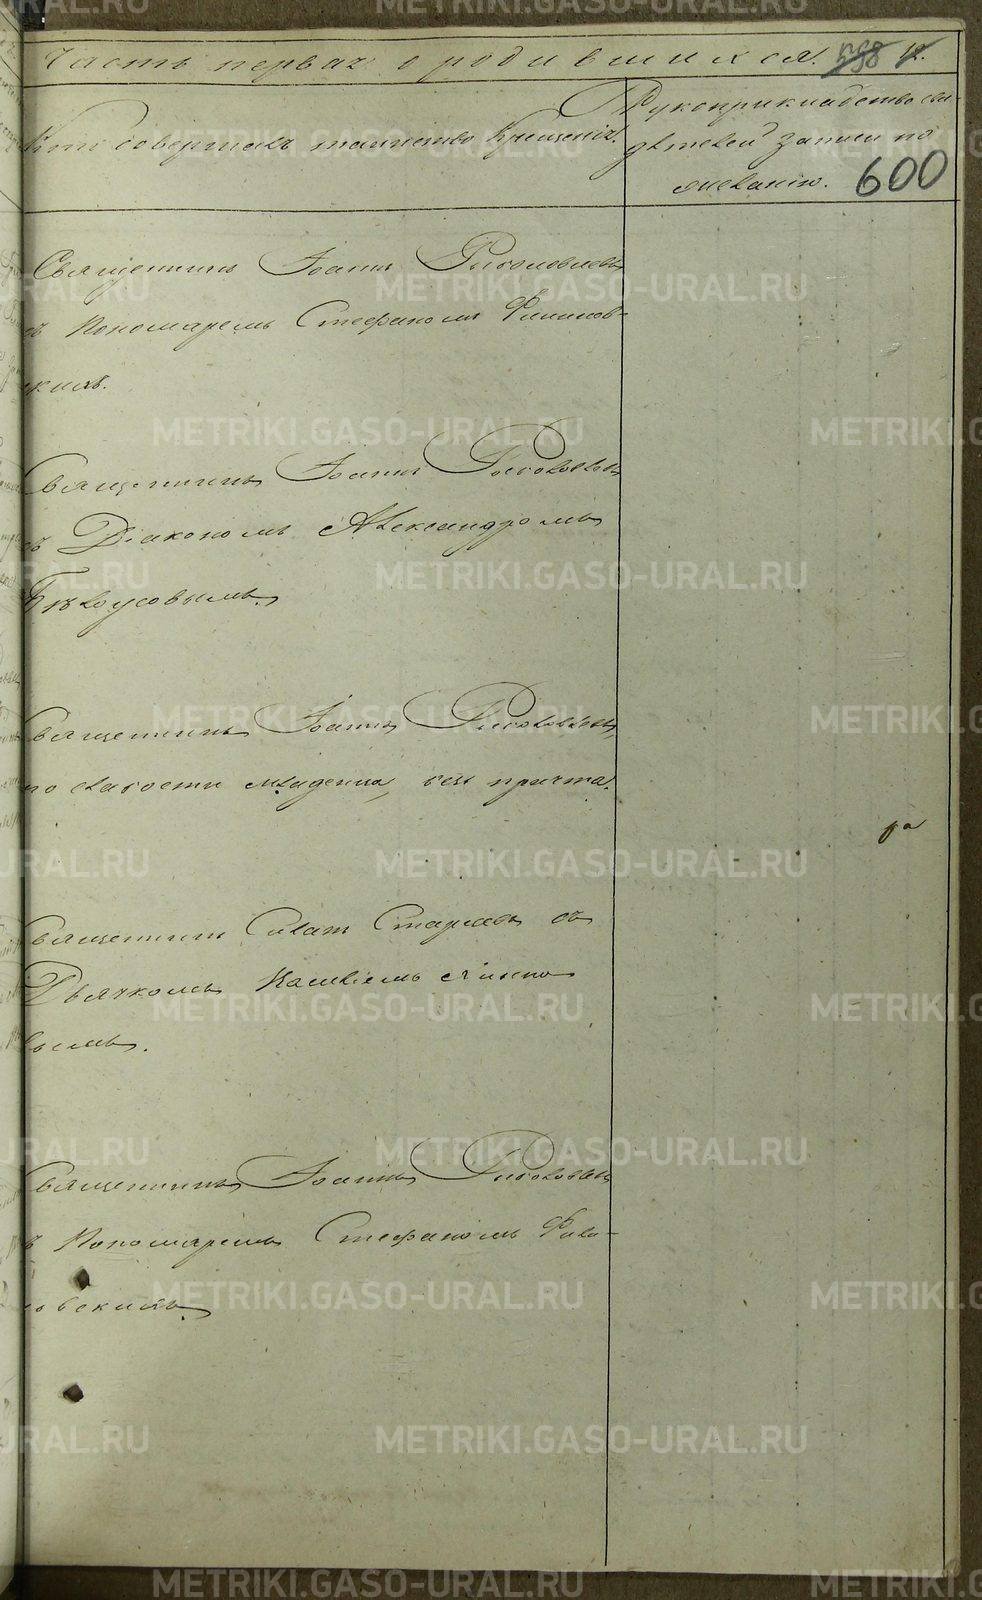 Часть первая о родившихся. 598 12.
Кто совершалъ таинство Крещенія.
Рукоприкладство сви-
дѣтелей записи по
желанію.
600
Священникъ Іоаннъ
съ Пономаремъ Стефаномъ
скимъ.
Священникъ Іоаннъ
съ Діакономъ Александромъ
Бѣлоусовымъ.
Священникъ Іоаннъ
по слабости младенца, безъ причта.
Священникъ Старцевъ съ
Дьячкомъ
вымъ.
Священникъ Іоаннъ
съ Пономаремъ Стефаномъ
ловскимъ.
METRIKI.GASO-URAL.RU